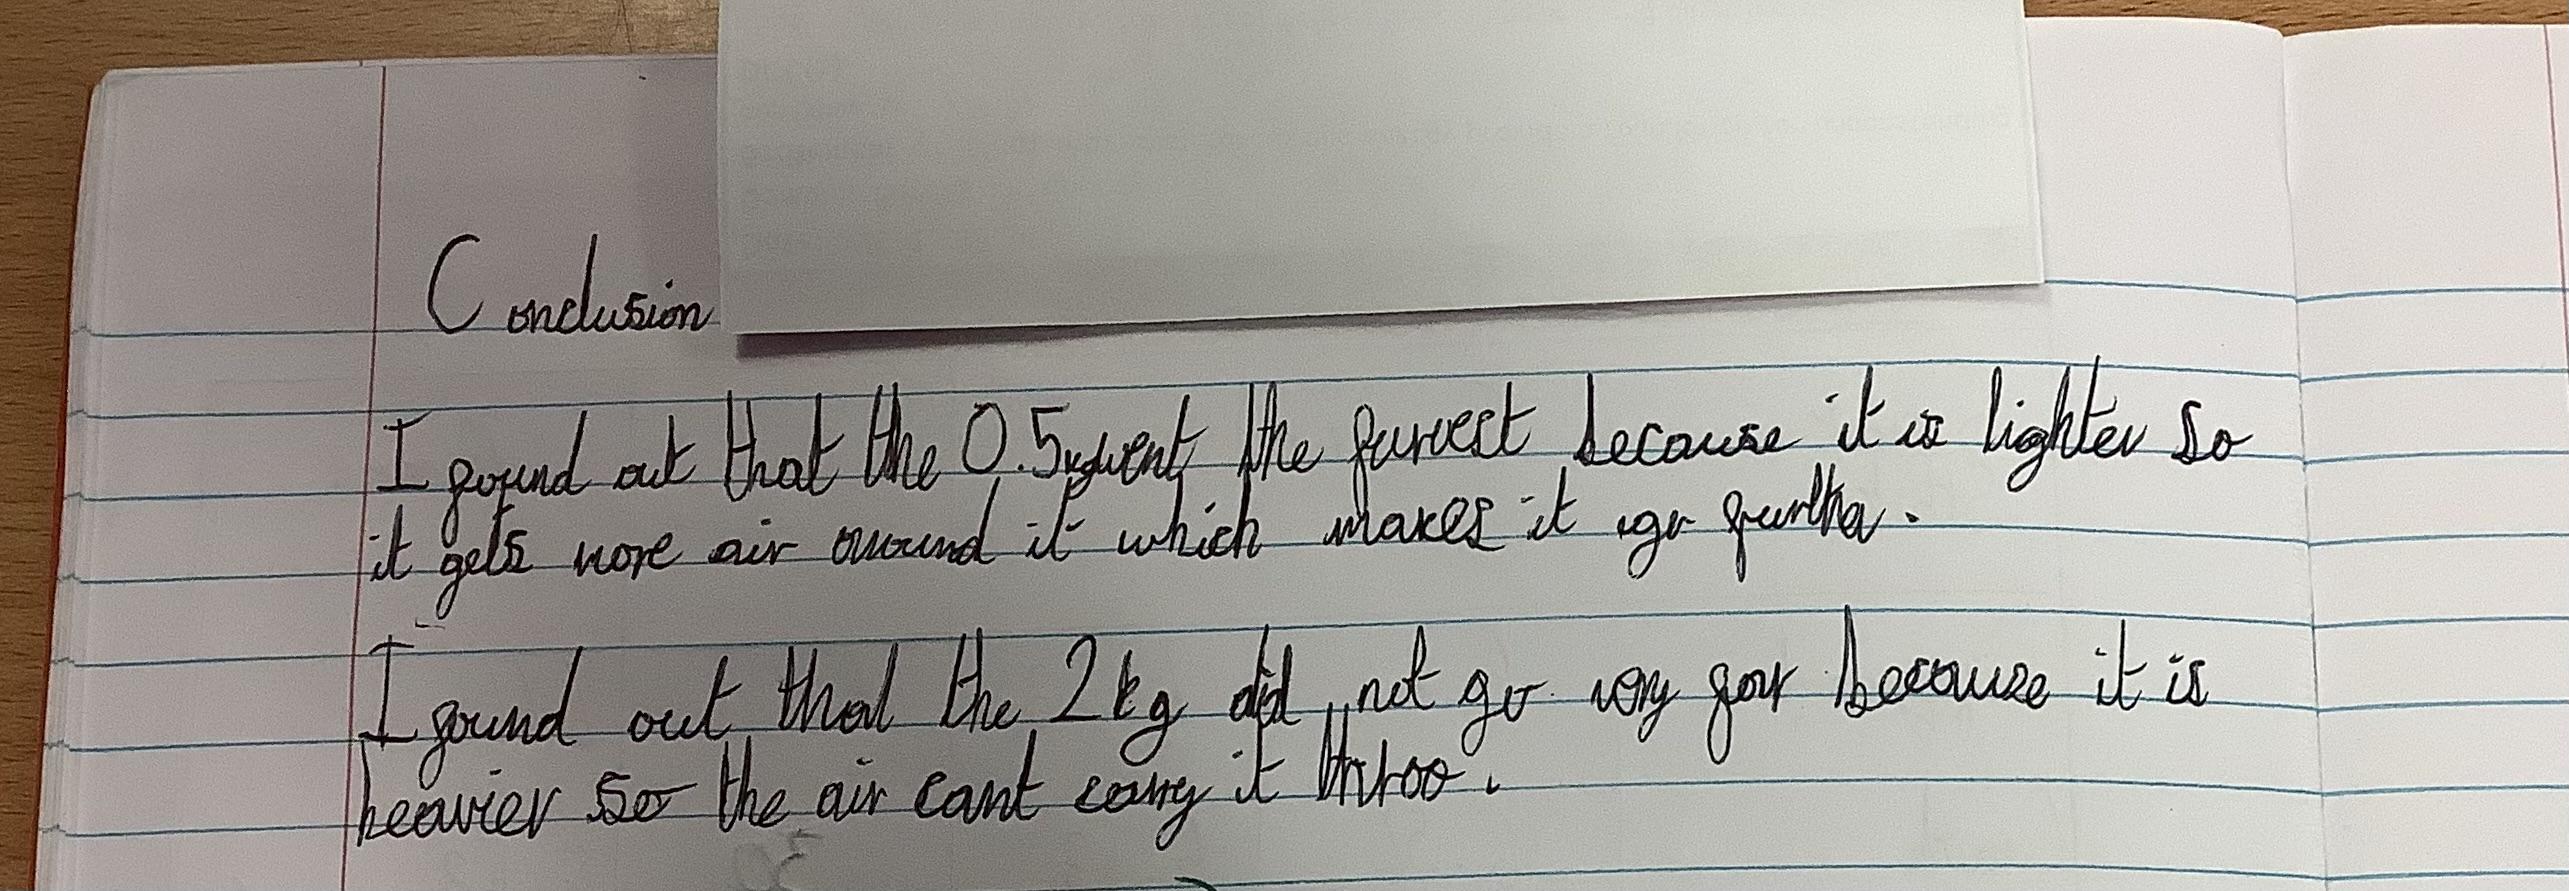 Conclusion
I found out that the 0.5kg went the furvest because it is lighter so
it gets more air around it which makes it go further.
I found out that the 2kg did not go very far because it is
heavier so the air cant carry it throo.